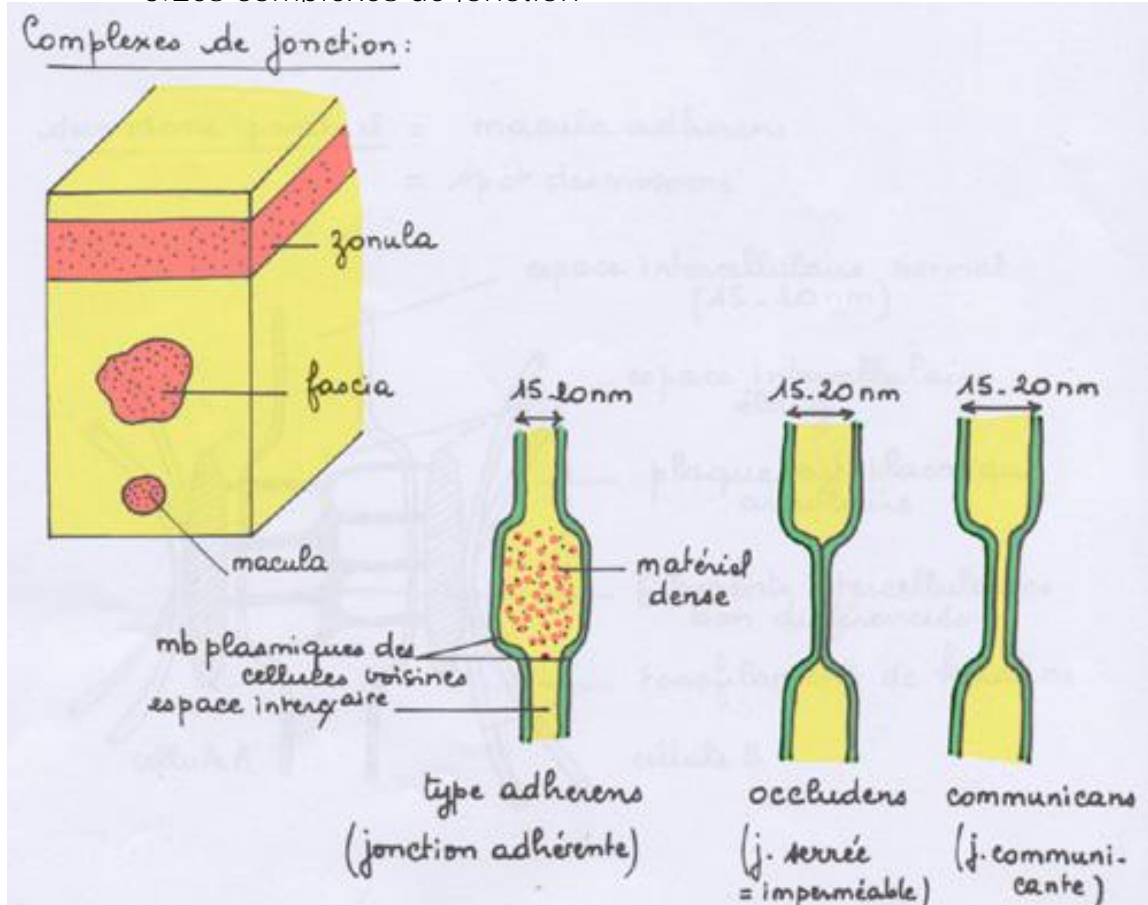 Complexes de jonction:
zonula
fascia
macula
15-20nm
15-20nm
15-20nm
matériel
dense
mb plasmiques des
cellules voisines
espace interc̸aire
type adherens
(jonction adhérente)
occludens
(j. serrée
= imperméable)
communicans
(j. communi-
cante)